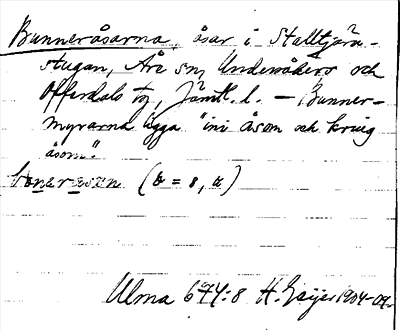 Bunneråsarna, åsar i Stalltjärn-
stugan, Åre sn, Undersåkers och
Offerdals tg, Jämtl. l. — Bunner-
myrarna ligga "ini åsom och kring
åsom."
(= s, a)
Ulma 674:8 H. Geijer 1904-09.